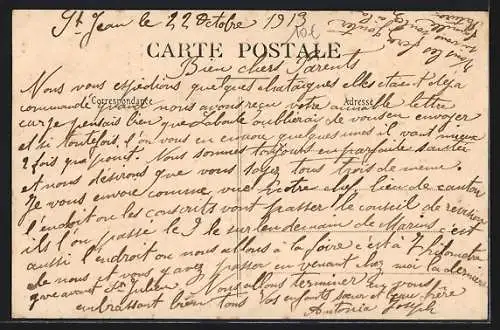 St Jean le 22 Octobre 1913
CARTE POSTALE
Correspondance
Adresse
Bien chers Parents
Nous vous expédions quelques chataignes elles etant déja
commandé quand nous avons reçu votre aimable lettre
car je pensais bien que Laboule oublierais de vous en envoyer
et si toutefois l'on vous en envoie quelques unes il vaut mieux
2 fois que point. Nous sommes toujours en parfaite santée
et nous désirons que vous soyez tous trois de meme.
Je vous envoie comme vue notre chef lieu de canton
l'endroit ou les conscrits vont passer le conseil de revision
ils l'on passé le 3 le surlendemain de Marius c'est
aussi l'endroit ou nous allons à la foire c'est à 7 kilometre
de nous et vous y avez passer en venant chez moi la derniere
avant St Julien. Nous allons terminer en vous
embrassant bien tous Vos enfants sœur et beau frère
Antonia Joseph